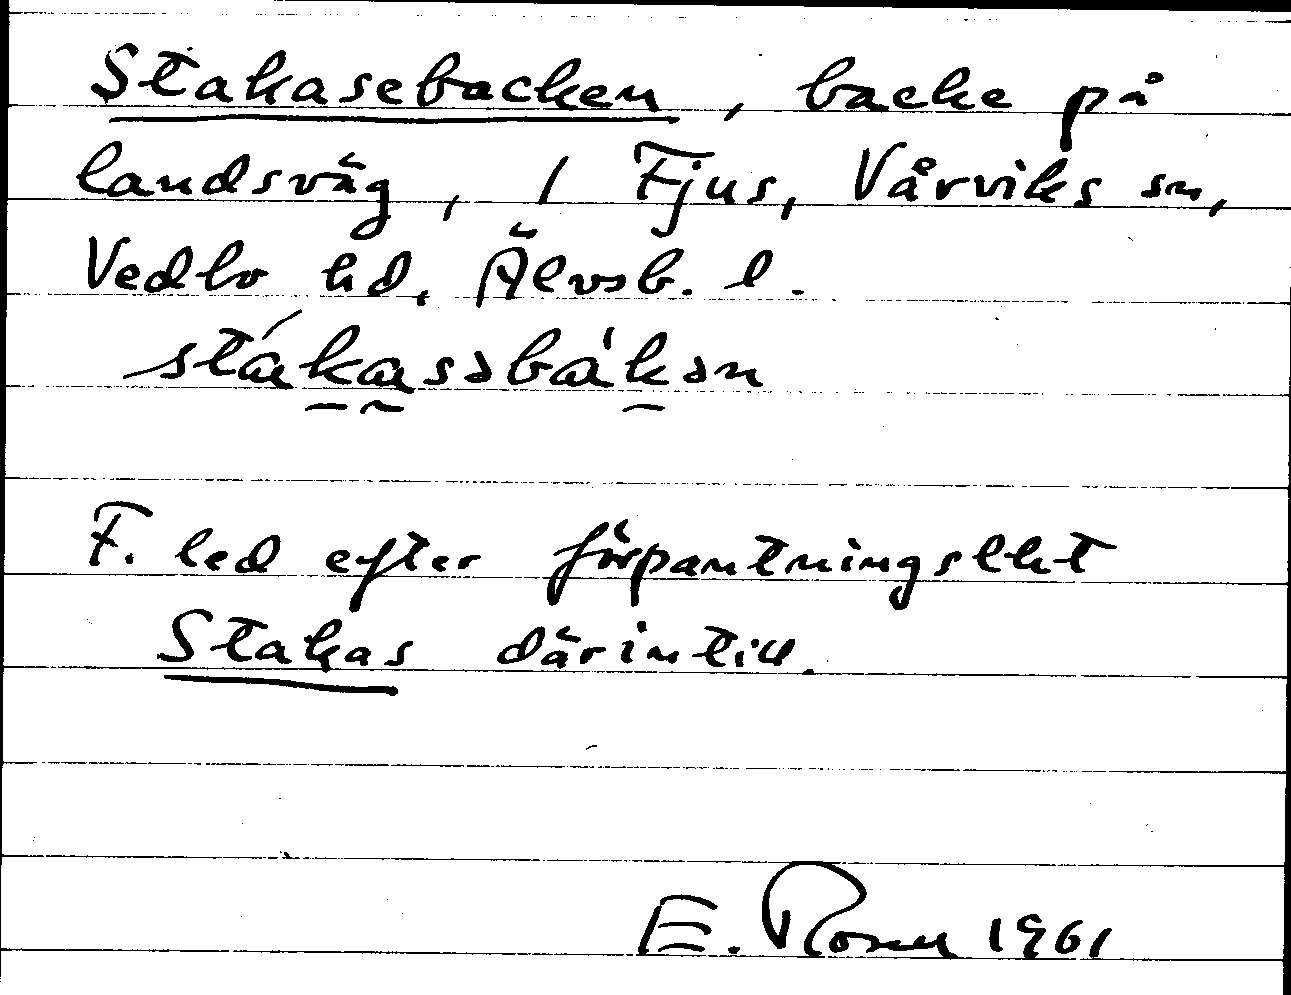 Stakasebacken, backe på
landsväg, 1 Fjus, Vårviks sn,
Vedbo hd, Älvsb. l.
stákasəbàkən
F. led efter förpantningslht
Stakas därintill.
E. Rosen 1961